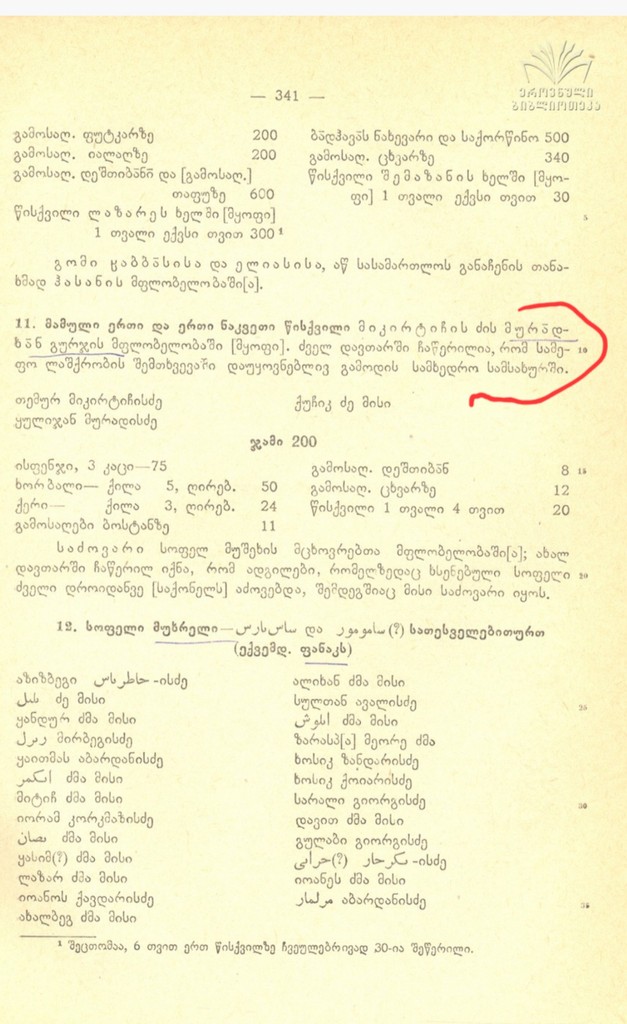 ეროვნული
ბიბლიოთეკა
— 341 —
გამოსაღ. ფუტკარზე 200
გამოსაღ. იალაღზე 200
გამოსაღ. დეშთიბანი და [გამოსაღ.]
თაფუზე 600
წისქვილი ლაზარეს ხელში [მყოფი]
1 თვალი ექვსი თვით 300¹
ბადჰავას ნახევარი და საქორწინო 500
გამოსაღ. ცხვარზე 340
წისქვილი შემაზანის ხელში [მყო-
ფი] 1 თვალი ექვსი თვით 30
5
გომი ჯაბბასისა და ელიასისა, აწ სასამართლოს განაჩენის თანა-
ხმად ჰასანის მფლობელობაში[ა].
11. მამული ერთი და ერთი ნაკვეთი წისქვილი მიკირტიჩის ძის მურად-
ხან გურჯის მფლობელობაში [მყოფი]. ძველ დავთარში ჩაწერილია, რომ სამე- 10
ფო ლაშქრობის შემთხვევაში დაუყოვნებლივ გამოდის სამხედრო სამსახურში.
თემურ მიკირტიჩისძე
ყულიჯან მურადისძე
ქუჩიკ ძე მისი
ჯამი 200
ისფენჯი, 3 კაცი—75
ხორბალი— ქილა 5, ღირებ. 50
ქერი— ქილა 3, ღირებ. 24
გამოსაღები ბოსტანზე 11
გამოსაღ. დეშთიბან 8 15
გამოსაღ. ცხვარზე 12
წისქვილი 1 თვალი 4 თვით 20
საძოვარი სოფელ მუშეხის მცხოვრებთა მფლობელობაში[ა]; ახალ
დავთარში ჩაწერილ იქნა, რომ ადგილები, რომელზედაც ხსენებული სოფელი 20
ძველი დროიდანვე [საქონელს] აძოვებდა, შემდეგშიაც მისი საძოვარი იყოს.
12. სოფელი მუხრელი— და (?) სათესველებითურთ
(ექვემდ. ფანაკს)
აზიზბეგი -ისძე
ძე მისი
ყანდურ ძმა მისი
მირბეგისძე
ყაითმას აბარდანისძე
ძმა მისი
მიტიჩ ძმა მისი
იორამ კორკმაზისძე
ძმა მისი
ყასიმ(?) ძმა მისი
ლაზარ ძმა მისი
იოანოს ქავდარისძე
ახალბეგ ძმა მისი
ალიხან ძმა მისი
სულთან ავალისძე 25
ძმა მისი
ზარასპ[ა] მეორე ძმა
ხოსიკ ზანდარისძე
ხოსიკ ქოიარისძე
სარალი გიორგისძე 30
დავით ძმა მისი
გულაბი გიორგისძე
(?) -ისძე
იოანეს ძმა მისი
აბარდანისძე 35
¹ შეცთომაა, 6 თვით ერთ წისქვილზე ჩვეულებრივად 30-ია შეწერილი.